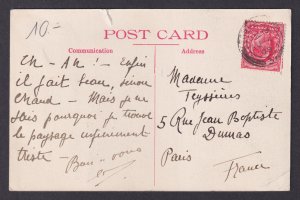 10.=
POST CARD
Communication
Address
Ch - Ah! - Enfin
il fait beau, sinon
chaud - Mais je ne
sais pourquoi je trouve
le paysage infiniment
triste - Bon
Madame
Teyssières
5 Rue Jean Baptiste
Dumas
Paris
France